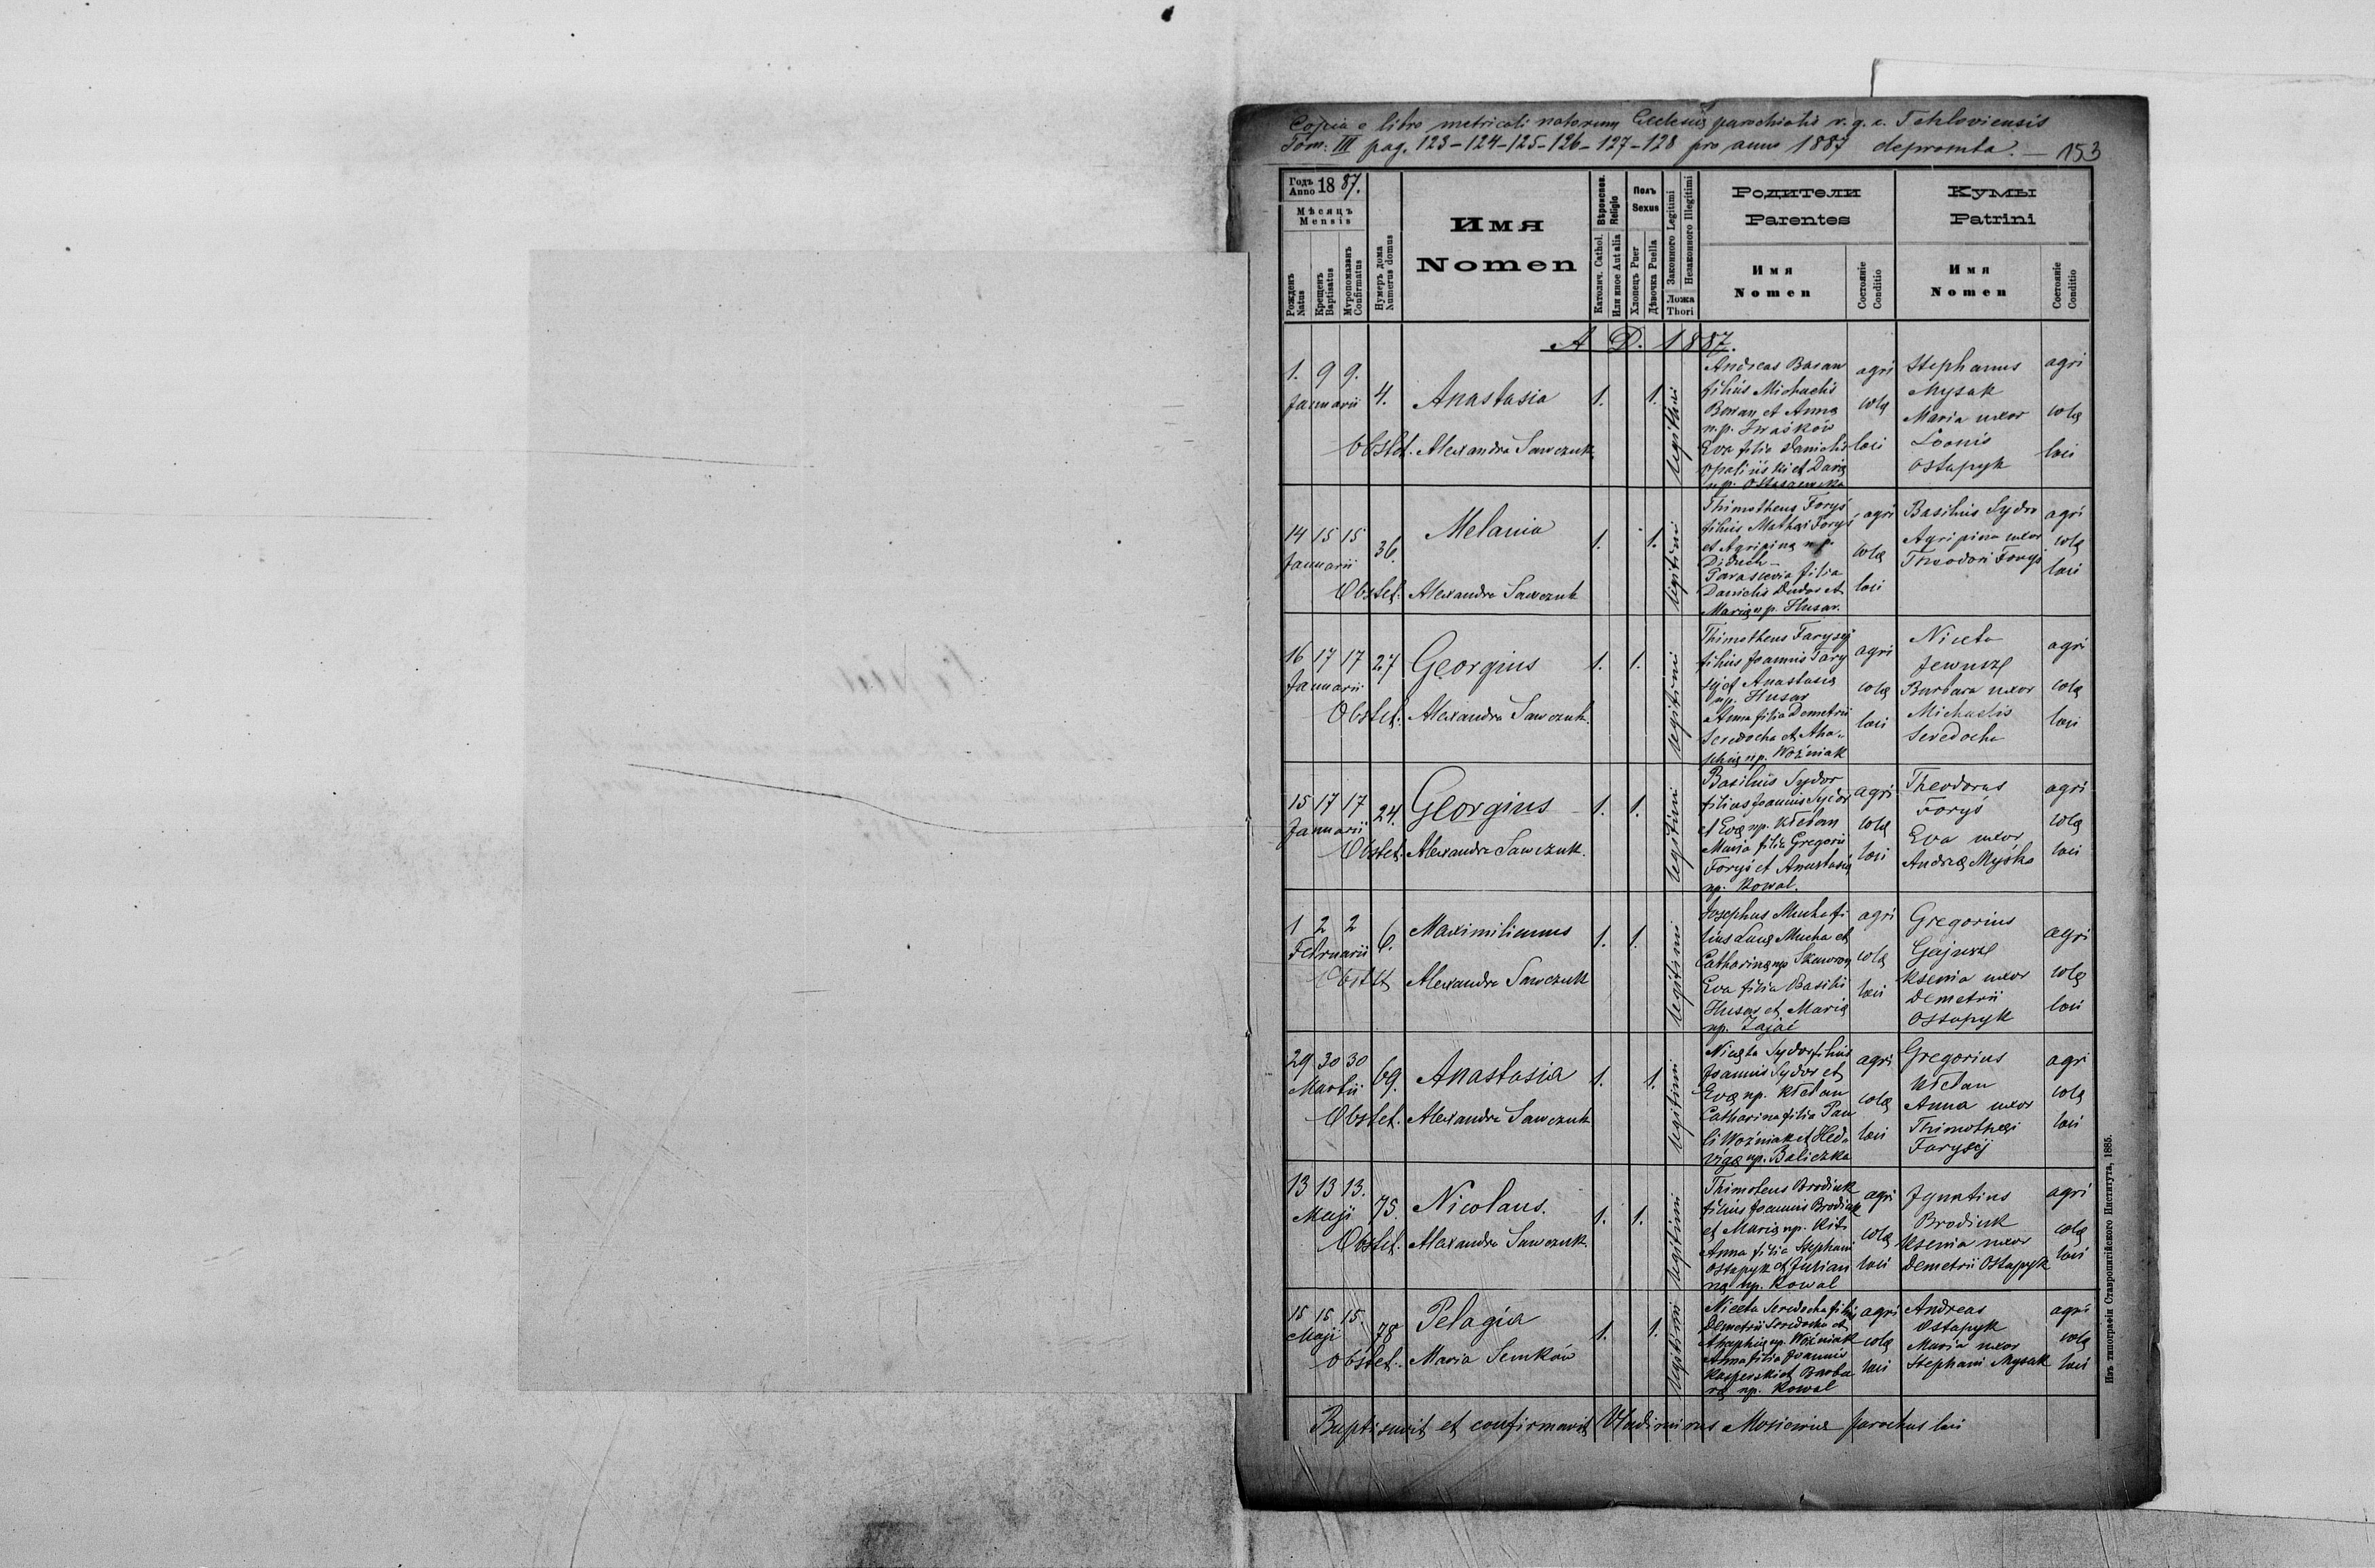 Copia e libro metricali natorum Ecclesiæ parochialis r. g. c. Tehloviensis
Tom: III pag. 123-124-125-126-127-128 pro anno 1887 depromta. — 153
Годъ Anno 1887.
Мѣсяцъ
Mensis
Рожденъ Natus
Крещенъ Baptisatus
Мѵропомазанъ Confirmatus
Нумеръ дома Numerus domus
Имя
Nomen
Вѣроиспов. Religio
Католич. Cathol.
Или иное Aut alia
Полъ Sexus
Хлопецъ Puer
Дѣвочка Puella
Законного Legitimi
Незаконного Illegitimi
Ложа Thori
Родители
Parentes
Имя
Nomen
Состояніе Conditio
Кумы
Patrini
Имя
Nomen
Состояніе Conditio
A D. 1887.
1. 9 9. Januarii
4.
Anastasia
1. 1.
Obstet. Alexandra Sawczuk
legitimi
Andreas Baran
filius Michaelis
Baran et Annæ
n.p. Iwaśków
Eva filia Danielis
Opaliński et Dariæ
n.p. Ostaszewska
agri
colæ
loci
Stephanus
Mysak
Maria uxor
Joannis
Ostapyk
agri
colæ
loci
14 15 15 Januarii
36.
Melania
1. 1.
Obstet. Alexandra Sawczuk
legitimi
Thimotheus Foryś
filius Mathæi Foryś
et Agripinæ n.p.
Diduch
Parascevia filia
Danielis Dudar et
Mariæ n.p. Husar.
agri
colæ
loci
Basilius Sydor
Agripina uxor
Theodori Foryś
agri
colæ
loci
16 17 17 Januarii
27
Georgius
1. 1.
Obstet. Alexandra Sawczuk.
legitimi
Thimotheus Farysej
filius Joannis Fary
sej et Anastasiæ
n.p. Husar
Anna filia Demetrii
Seredocha et Aha-
phiæ n.p. Woźniak
agri
colæ
loci
Niceta
Jewusz
Barbara uxor
Michaelis
Seredocha
agri
colæ
loci
15 17 17 Januarii
24.
Georgius
1. 1.
Obstet. Alexandra Sawczuk.
legitimi
Basilius Sydor
filius Joannis Sydor
et Evæ n.p. Kłeban
Maria filia Gregorii
Foryś et Anastasiæ
n.p. Kowal.
agri
colæ
loci
Theodorus
Foryś
Eva uxor
Andreæ Myśko
agri
colæ
loci
1 2 2 Februarii
6.
Maximilianus
1. 1.
Obstet Alexandra Sawczuk
legitimi
Josephus Mucha fi
lius Lucæ Mucha et
Catharinæ n.p. Skowron
Eva filia Basilii
Husar et Mariæ
n.p. Zając
agri
colæ
loci
Gregorius
Ksenia uxor
Demetrii
Ostapyk
agri
colæ
loci
29 30 30 Martii
69.
Anastasia
1. 1.
Obstet. Alexandra Sawczuk
legitimi
Niceta Sydor filius
Joannis Sydor et
Evæ n.p. Kłeban
Catharina filia Pau
li Woźniak et Hed
vigæ n.p. Baliczka
agri
colæ
loci
Gregorius
Kłeban
Anna uxor
Thimothæi
Farysej
agri
colæ
loci
13 13 13. Maji
75.
Nicolaus.
1. 1.
Obstet. Alexandra Sawczuk
legitimi
Thimoteus Brodiuk
filius Joannis Brodiuk
et Mariæ n.p. Kit
Anna filia Stephani
Ostapyk et Julian
næ n.p. Kowal
agri
colæ
loci
Ignatius
Brodiuk
Ksenia uxor
Demetrii Ostapyk
agri
colæ
loci
15 15 15. Maji
78
Pelagia
1. 1.
Obstet. Maria Semków
legitimi
Niceta Seredocha filius
Demetrii Seredocha et
Ahaphiæ n.p. Woźniak
Anna filia Joannis
Kasperski et Barba
ræ n.p. Kowal
agri
colæ
loci
Andreas
Ostapyk
Maria uxor
Stephani Mysak
agri
colæ
loci
Baptisavit et confirmavit Vladimirus Mosiewicz parochus loci
Изъ типографіи Ставропигійского Института, 1885.